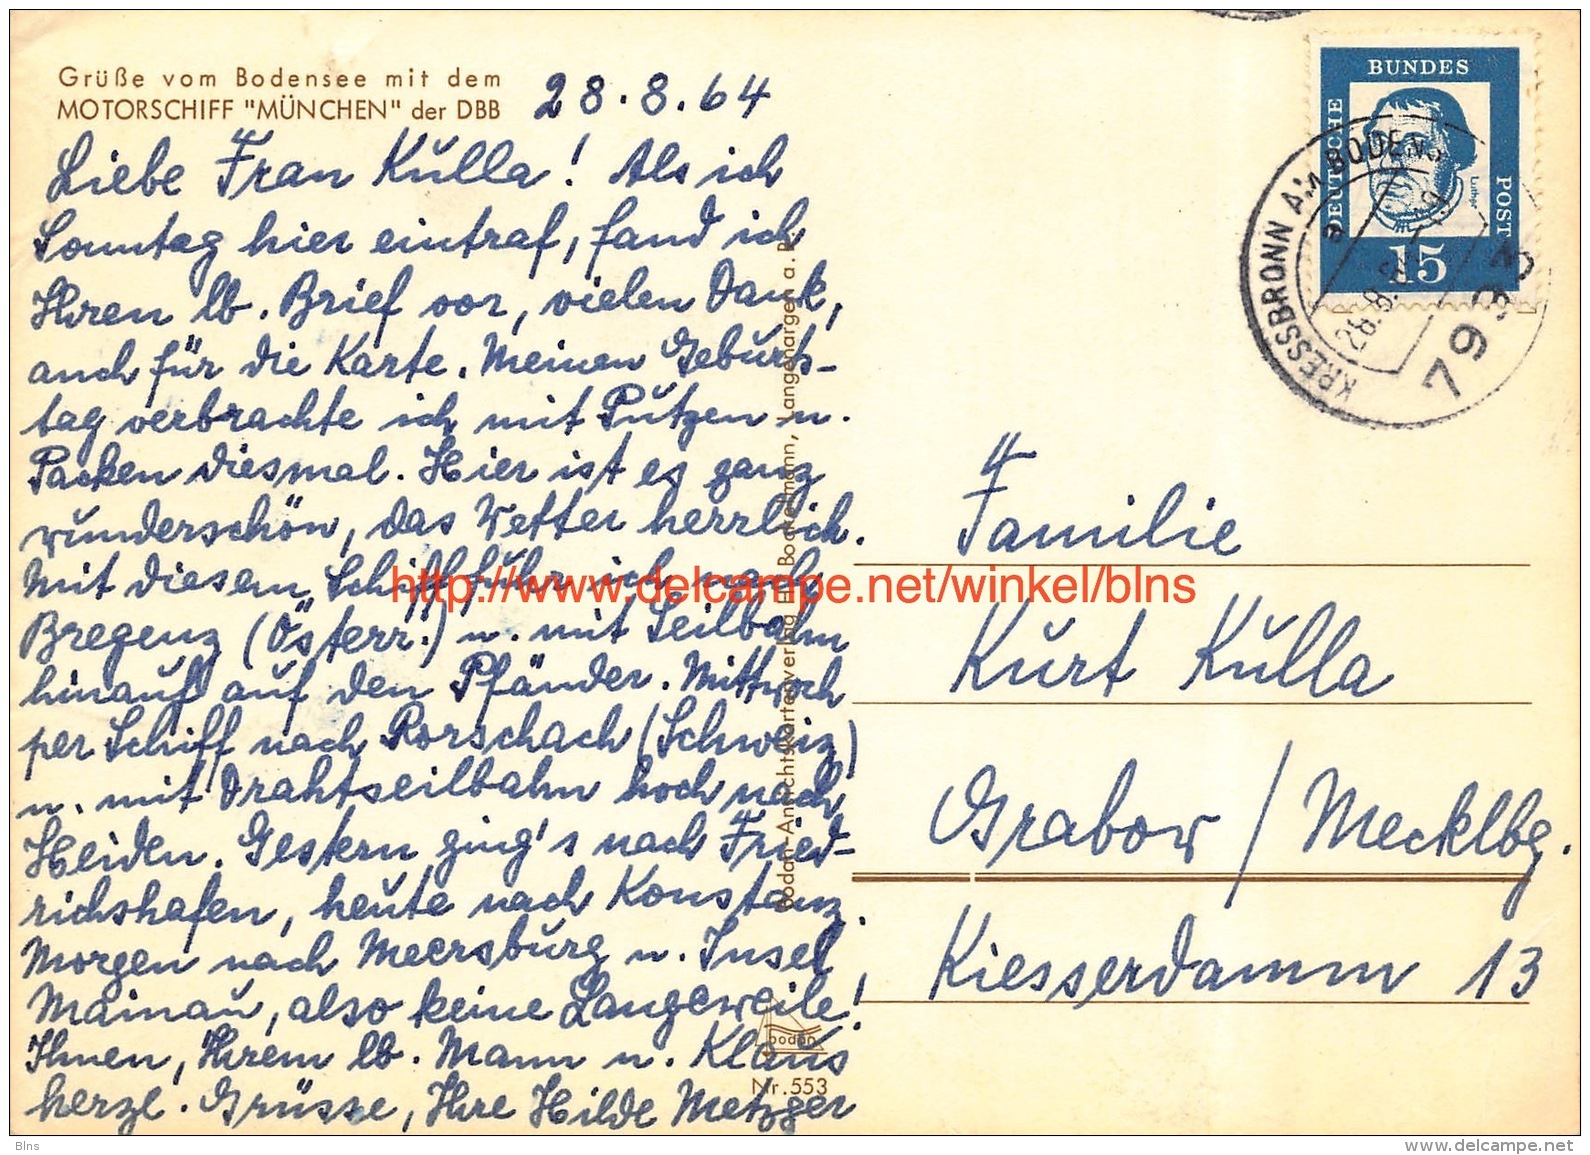 Grüße vom Bodensee mit dem
MOTORSCHIFF "MÜNCHEN" der DBB
28.8.64
Liebe Frau Kulla! Als ich
Sonntag hier eintraf, fand ich
Ihren lb. Brief vor, vielen Dank,
auch für die Karte. Meinen Geburts-
tag verbrachte ich mit Putzen u.
Packen diesmal. Hier ist es ganz
wunderschön, das Wetter herrlich.
Mit diesem Schiff fuhr ich nach
Bregenz (Österr.) u. mit Seilbahn
hinauf auf den Pfänder. Mittwoch
per Schiff nach Rorschach (Schweiz)
u. mit Drahtseilbahn hoch nach
Heiden. Gestern ging's nach Fried-
richshafen, heute nach Konstanz.
Morgen nach Meersburg u. Insel
Mainau, also keine Langeweile!
Ihnen, Ihrem lb. Mann u. Klaus
herzl. Grüsse, Ihre Hilde Metzger
Bodan-Ansichtskartenverlag Langenargen a. B.
bodan
Nr. 553
DEUTSCHE
BUNDES
POST
Luther
15
KRESSBRONN AM BODENS
28.8.64
7993
Familie
Kurt Kulla
Grabow / Mecklbg.
Kiesserdamm 13
http://www.delcampe.net/winkel/blns
Blns
www.delcampe.net